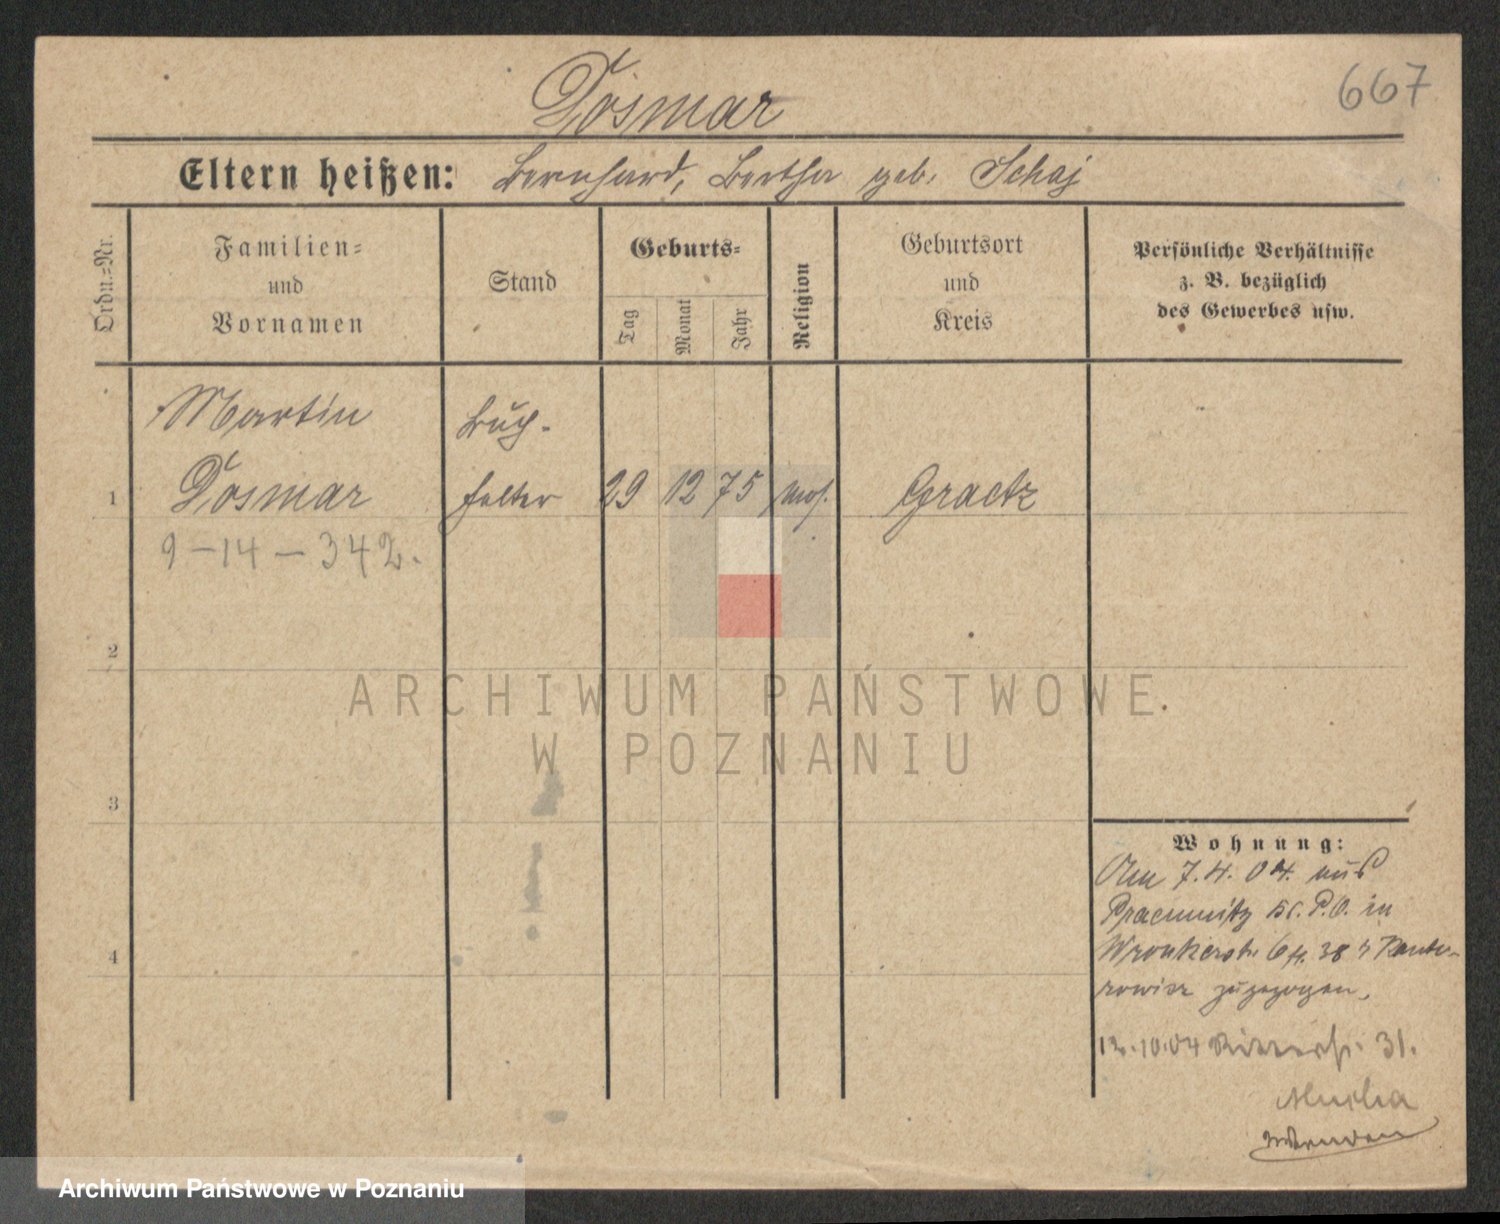 667
Dosmar
Eltern heißen: Bernhard, Bertha geb. Schaj
Ordn.=Nr.
Familien=
und
Vornamen
Stand
Geburts=
Tag
Monat
Jahr
Religion
Geburtsort
und
Kreis
Persönliche Verhältnisse
z. B. bezüglich
des Gewerbes usw.
Martin
Buch-
1 Dosmar halter 29 12 75 mos. Graetz
9-14-342.
2
ARCHIWUM PAŃSTWOWE
W POZNANIU
3
Wohnung:
Am 7.4.04. aus
P.O. in
Wronkerstr. 6 38
zugezogen.
12.10.04 Ritterstr. 31.
4
Archiwum Państwowe w Poznaniu